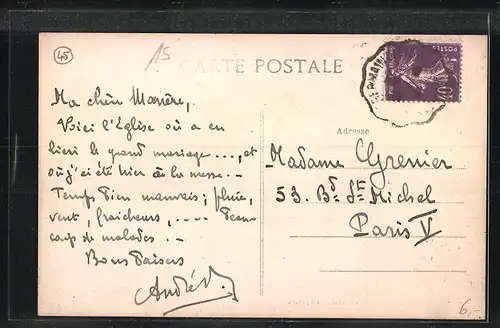 45
15
CARTE POSTALE
POSTES
40
Ma chère
Voici l'Église où a eu
lieu le grand mariage ...., et
où j'ai été hier à la messe. -
Temps bien mauvais ; pluie,
vent, fraicheurs, .... Beau-
coup de malades . -
Bons baisers
André
Adresse
Madame Grenier
53. Bd St Michel
Paris V
6,-